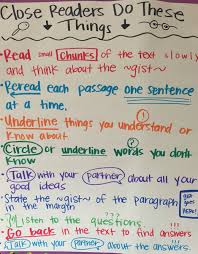 Close Readers Do These
Things
• Read small chunks of the text slowly
and think about the ~gist~
• Reread each passage one sentence
at a time.
• Underline things you understand or
know about
• Circle or underline words you don't
know
• Talk with your partner about all your
good ideas
• State the ~gist~ of the paragraph
in the margin
• Listen to the questions ???
• Go back in the text to find answers
• Talk with your partner about the answers.